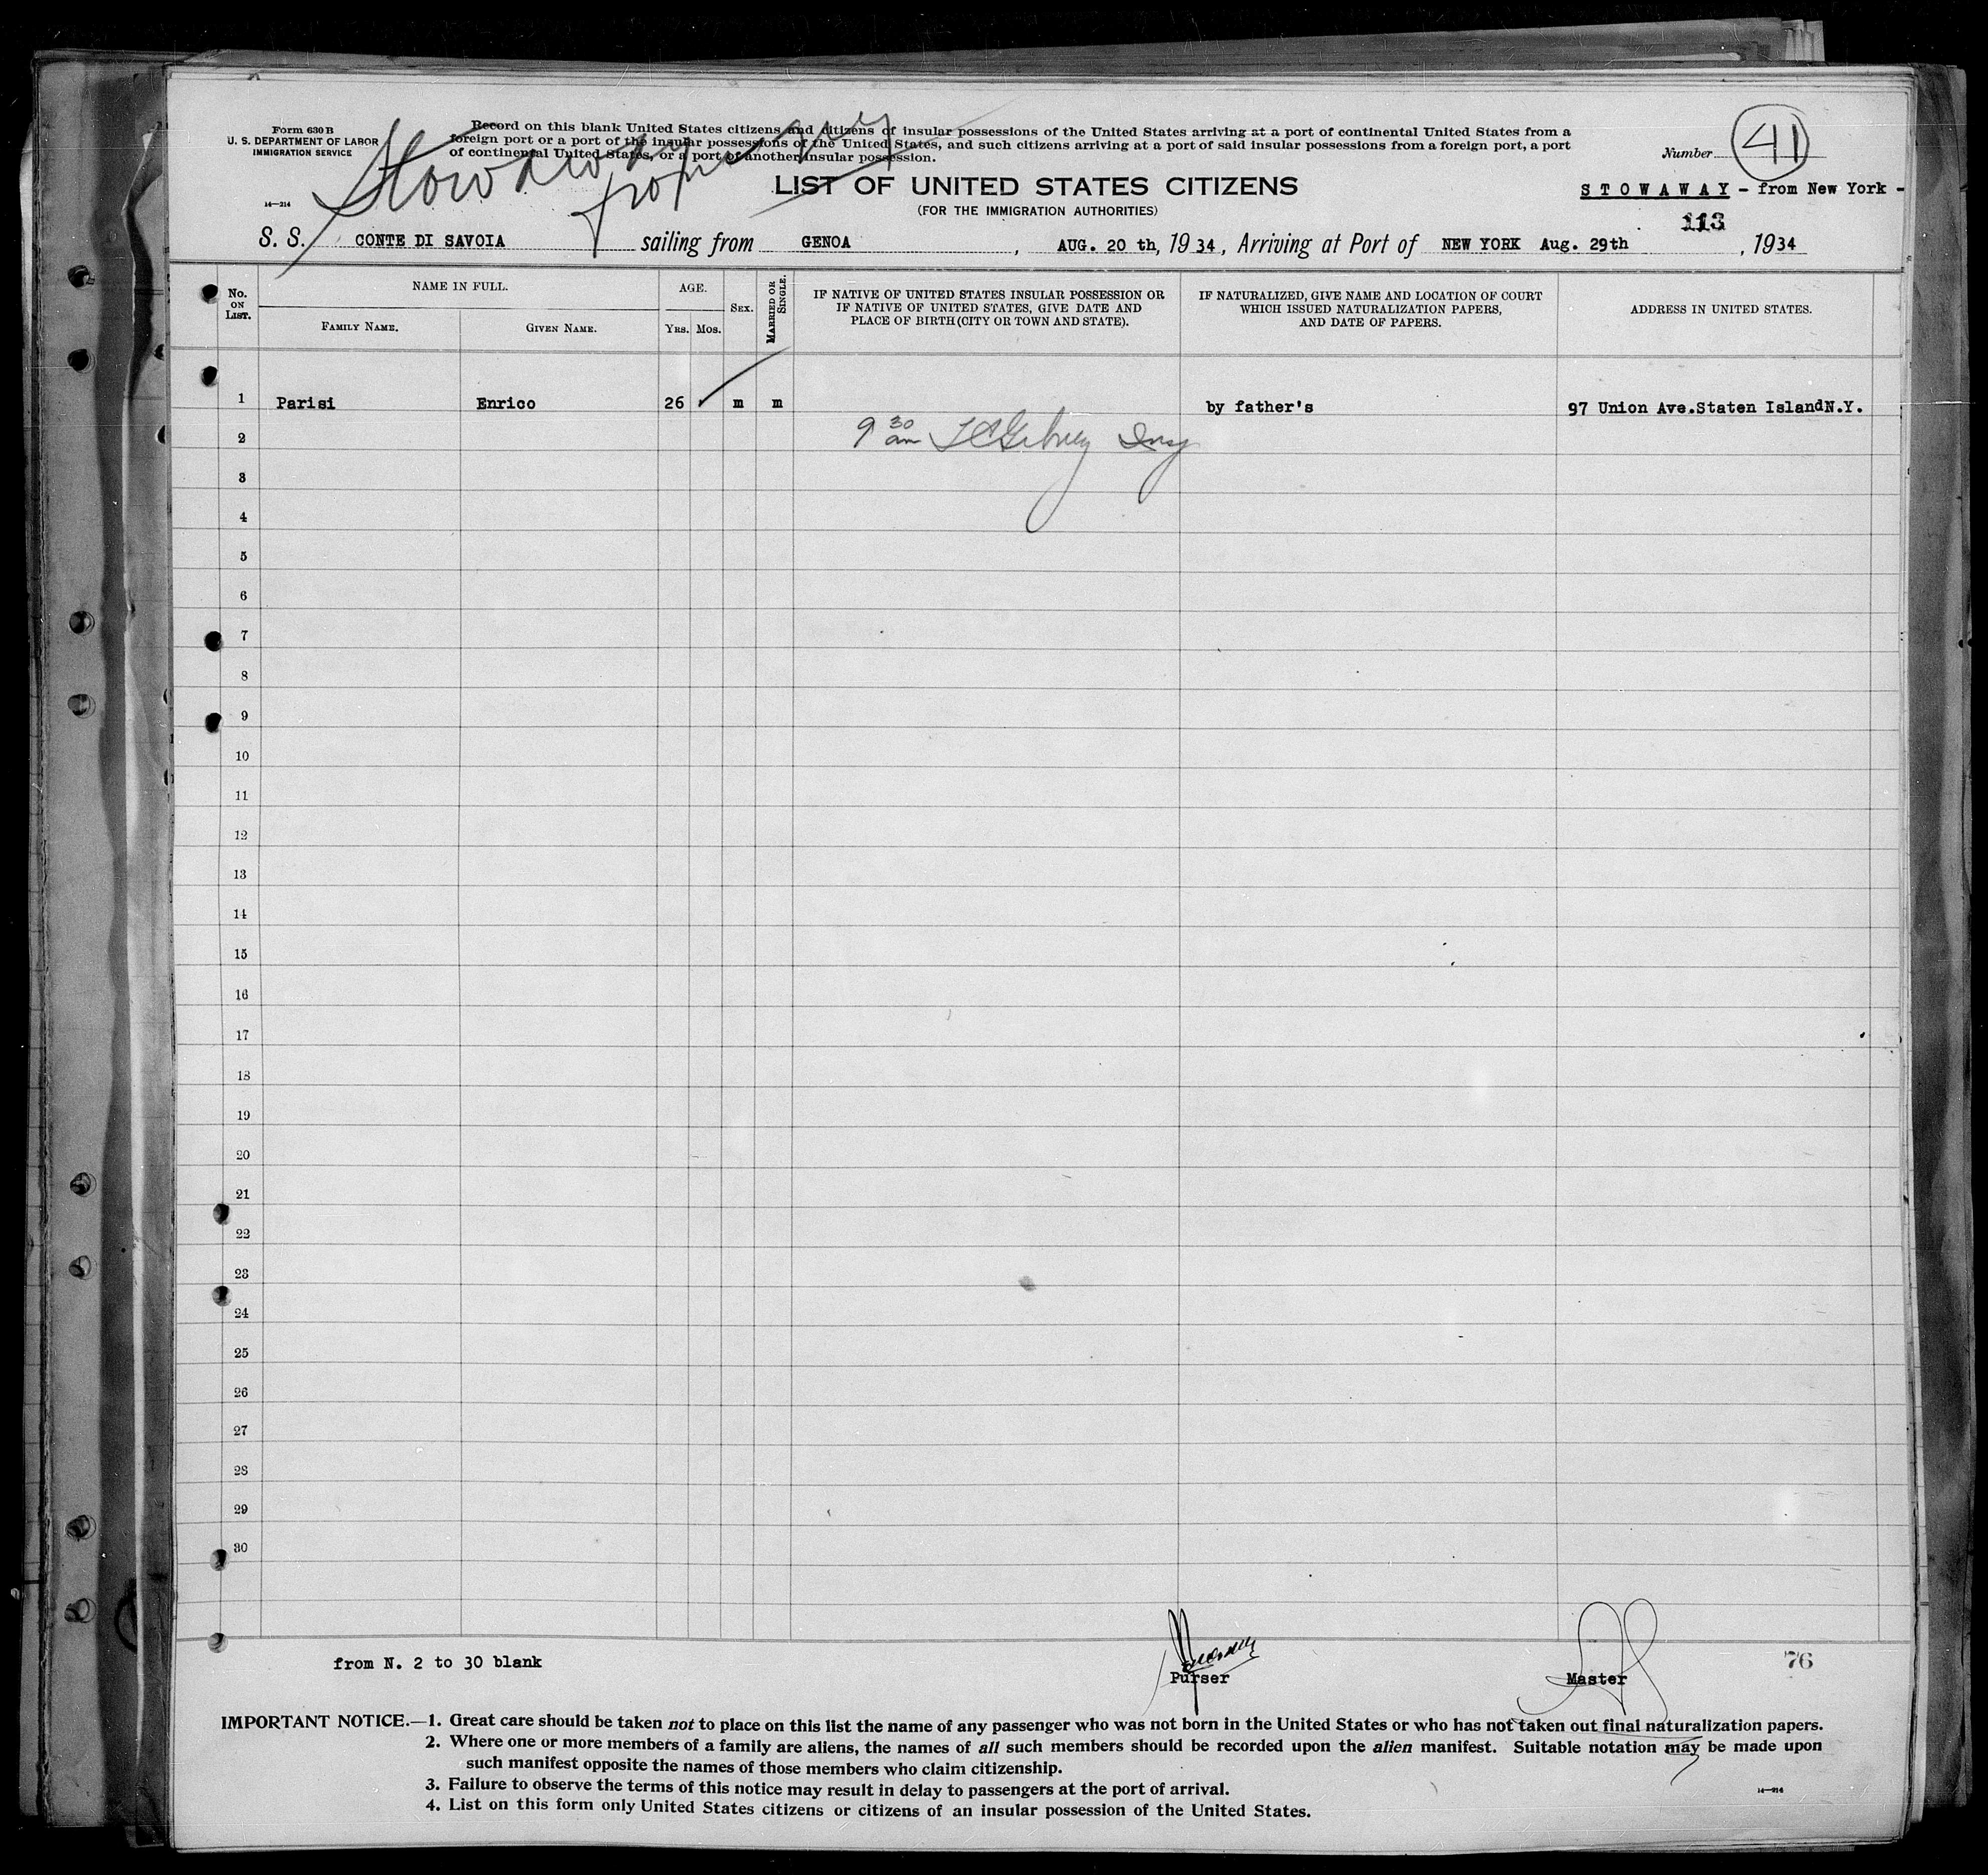 Form 630 B
U. S. DEPARTMENT OF LABOR
IMMIGRATION SERVICE
14—214
Record on this blank United States citizens and citizens of insular possessions of the United States arriving at a port of continental United States from a
foreign port or a port of the insular possessions of the United States, and such citizens arriving at a port of said insular possessions from a foreign port, a port
of continental United States, or a port of another insular possession.
Number 41
Stowaway
from
LIST OF UNITED STATES CITIZENS
(FOR THE IMMIGRATION AUTHORITIES)
STOWAWAY - from New York -
113
S. S. CONTE DI SAVOIA sailing from GENOA, AUG. 20 th, 1934, Arriving at Port of NEW YORK Aug. 29th, 1934
No. ON LIST.
NAME IN FULL.
FAMILY NAME.
GIVEN NAME.
AGE.
YRS. MOS.
SEX.
MARRIED OR SINGLE.
IF NATIVE OF UNITED STATES INSULAR POSSESSION OR
IF NATIVE OF UNITED STATES, GIVE DATE AND
PLACE OF BIRTH (CITY OR TOWN AND STATE).
IF NATURALIZED, GIVE NAME AND LOCATION OF COURT
WHICH ISSUED NATURALIZATION PAPERS,
AND DATE OF PAPERS.
ADDRESS IN UNITED STATES.
1 Parisi Enrico 26 m m by father's 97 Union Ave.Staten IslandN.Y.
2 9 30 am
3
4
5
6
7
8
9
10
11
12
13
14
15
16
17
18
19
20
21
22
23
24
25
26
27
28
29
30
from N. 2 to 30 blank
Purser
Master
76
IMPORTANT NOTICE.—1. Great care should be taken not to place on this list the name of any passenger who was not born in the United States or who has not taken out final naturalization papers.
2. Where one or more members of a family are aliens, the names of all such members should be recorded upon the alien manifest. Suitable notation may be made upon
such manifest opposite the names of those members who claim citizenship.
3. Failure to observe the terms of this notice may result in delay to passengers at the port of arrival.
4. List on this form only United States citizens or citizens of an insular possession of the United States.
14—214